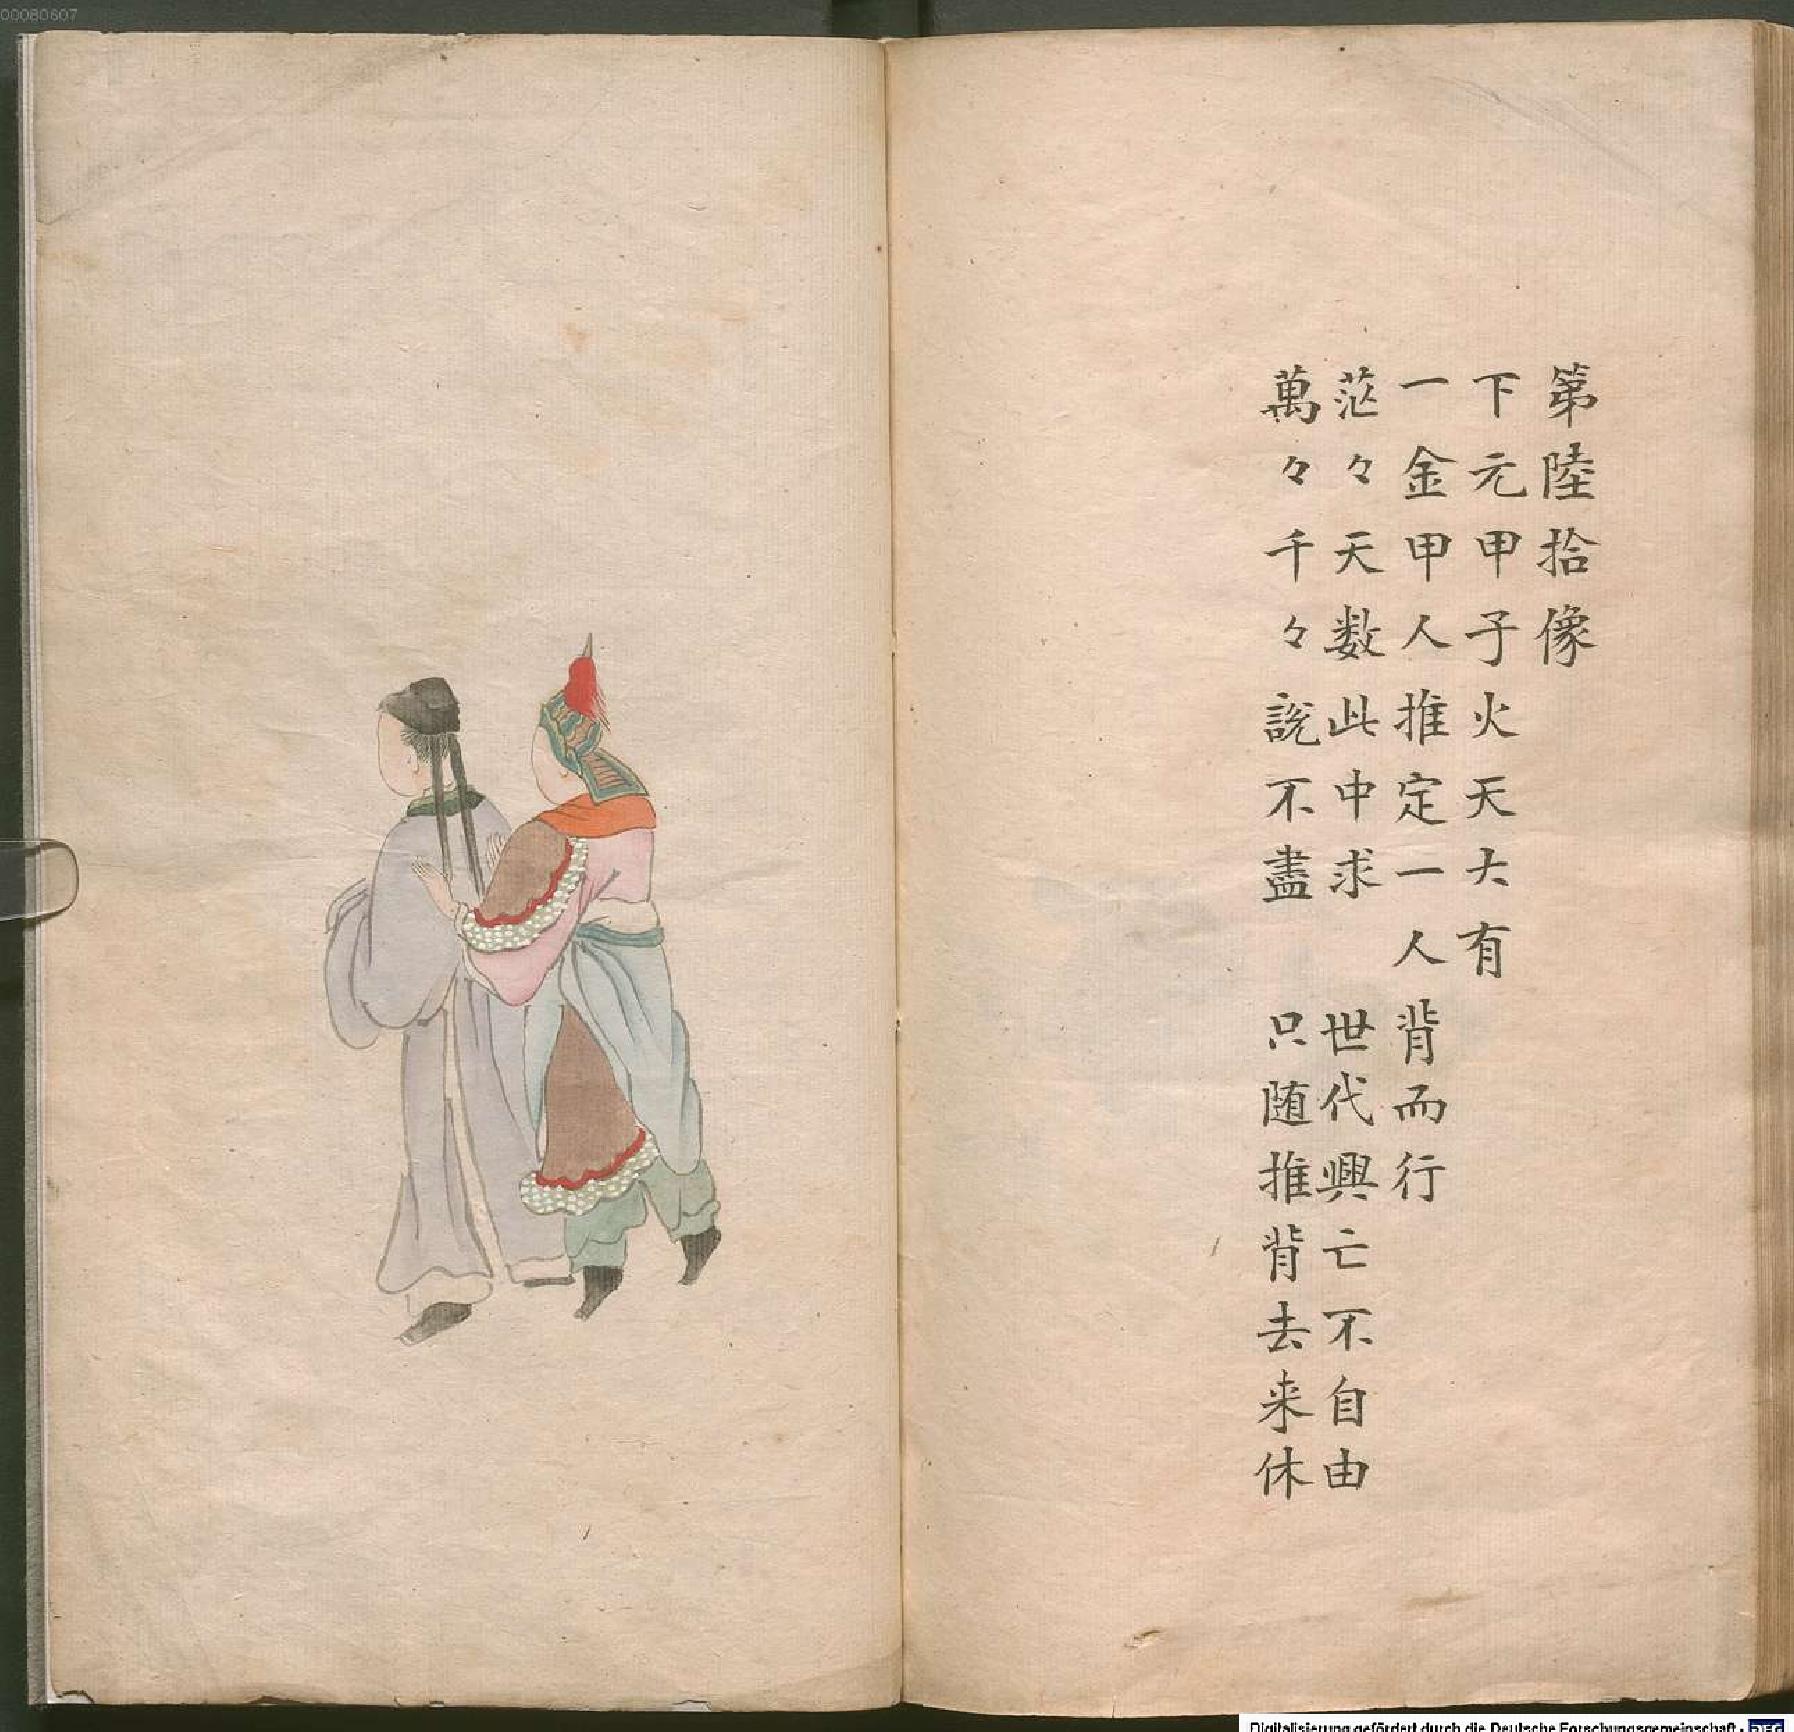 00080607
第陸拾像
下元甲子火天大有
一金甲人推定一人背而行
茫々天数此中求 世代興亡不自由
萬々千々説不盡 只随推背去来休
Digitalisierung gefördert durch die Deutsche Forschungsgemeinschaft - DFG